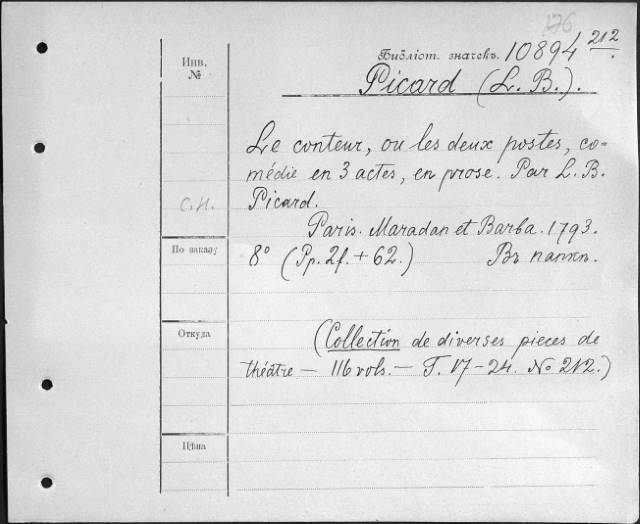 176
Инв.
№
Библіот. значекъ. 10894 212
Picard (L. B.).
Le conteur, ou les deux postes, co-
médie en 3 actes, en prose. Par L. B.
С.Н. Picard.
Paris. Maradan et Barba. 1793.
По заказу 8° (Pp. 2f. + 62.) Въ папкѣ.
Откуда
(Collection de diverses pieces de
théâtre — 116 vols. — T. 17-24. № 212.)
Цѣна